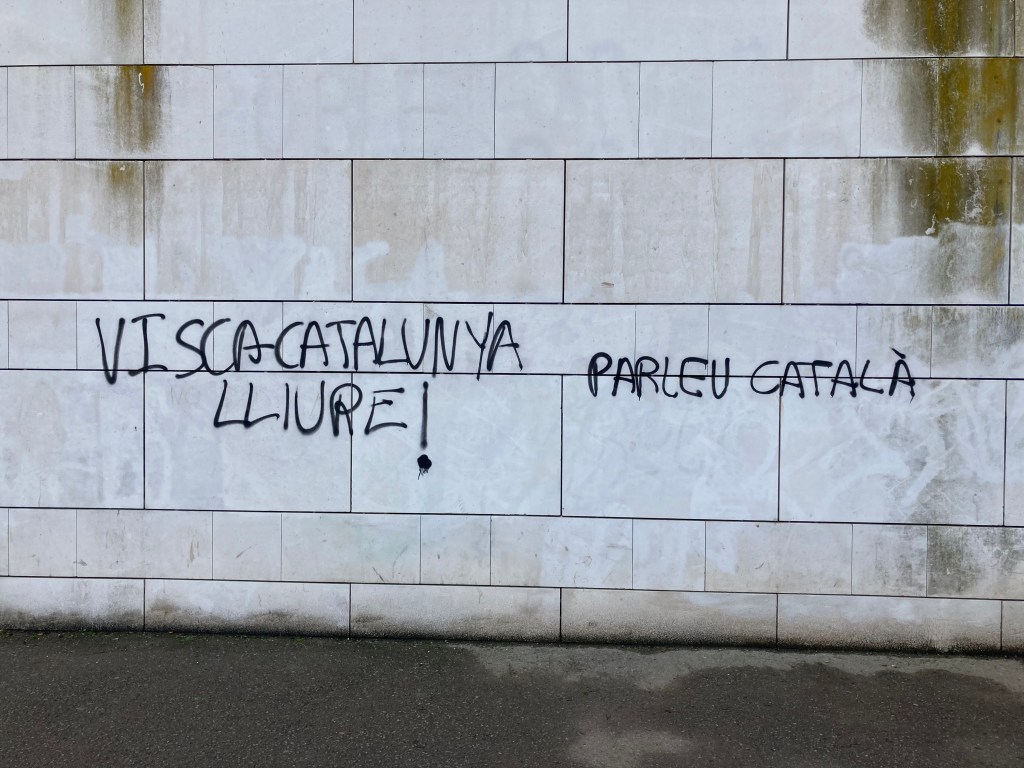 VISCA CATALUNYA
LLIURE!
PARLEU CATALÀ